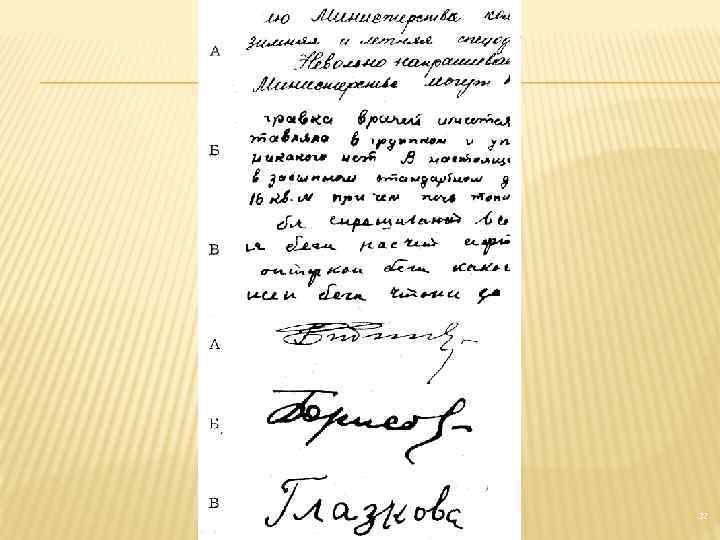 ию Министерства
А
зимняя и летняя спецод
Невольно напрашиваю
Министерства могут
гравка врачей имеется
Б
тавляло в групком и уп
никакого нет В настоящи
в засыпном стандартном д
16 кв. м при чем печь топи
бл спрашиваний
В
бега насчет
бега какого
бега чтоли
А
Б.
Борисов
В
Глазкова
37